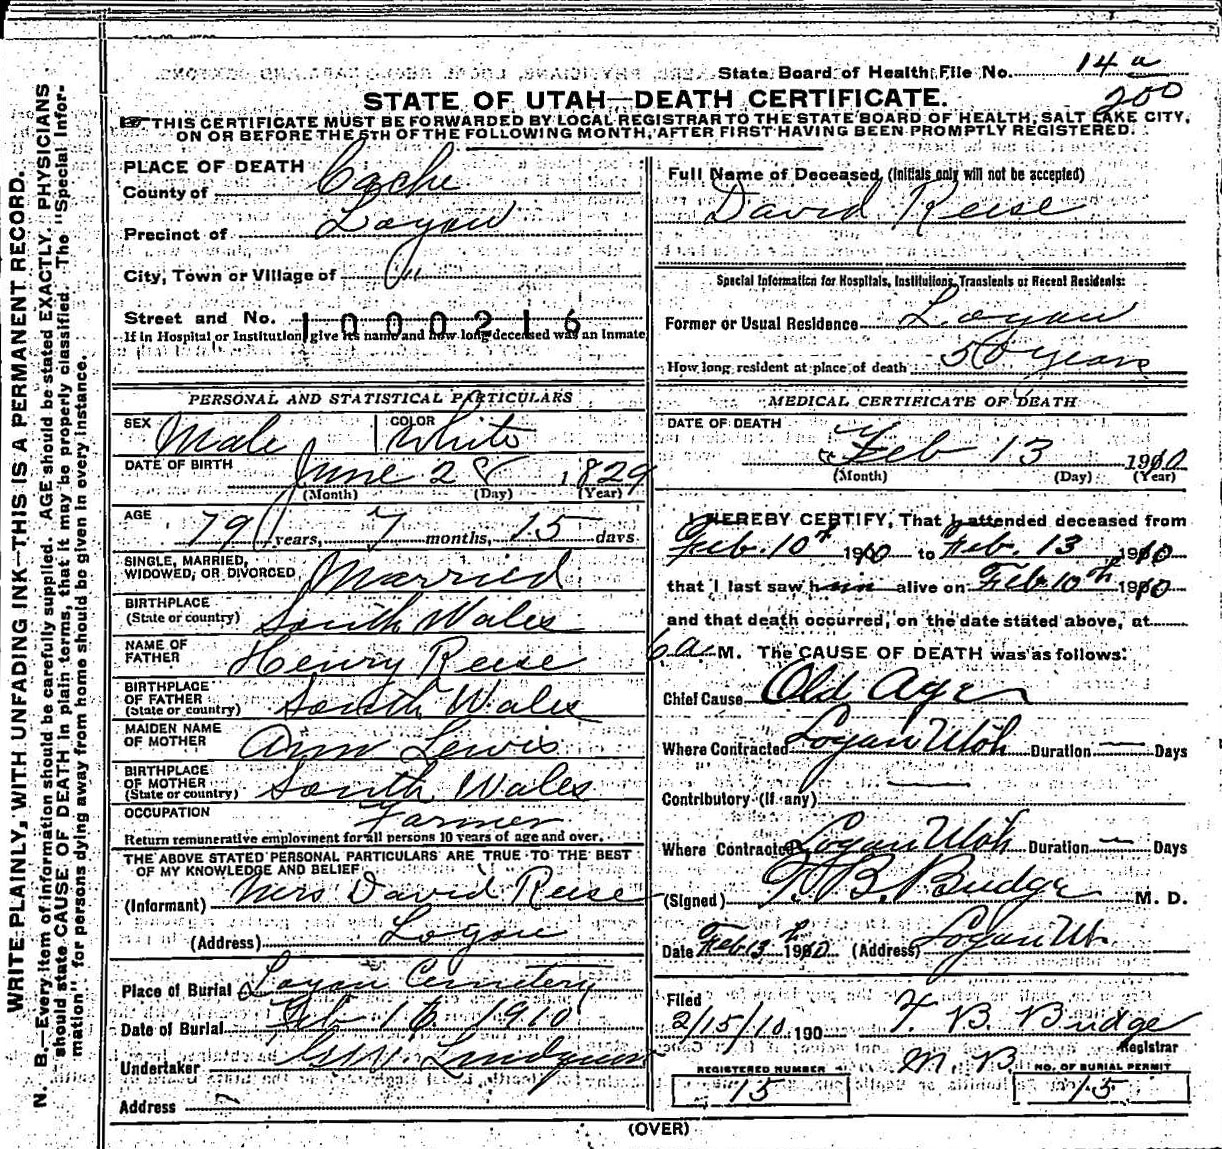 State Board of Health File No. 14 a
200
STATE OF UTAH—DEATH CERTIFICATE.
THIS CERTIFICATE MUST BE FORWARDED BY LOCAL REGISTRAR TO THE STATE BOARD OF HEALTH, SALT LAKE CITY,
ON OR BEFORE THE 5TH OF THE FOLLOWING MONTH, AFTER FIRST HAVING BEEN PROMPTLY REGISTERED.
WRITE PLAINLY, WITH UNFADING INK—THIS IS A PERMANENT RECORD.
N. B.—Every item of information should be carefully supplied. AGE should be stated EXACTLY. PHYSICIANS
should state CAUSE OF DEATH in plain terms, that it may be properly classified. The "Special Infor-
mation" for persons dying away from home should be given in every instance.
PLACE OF DEATH
County of Cache
Precinct of Logan
City, Town or Village of "
Street and No.
1000216
If in Hospital or Institution, give its name and how long deceased was an inmate
PERSONAL AND STATISTICAL PARTICULARS
SEX Male COLOR White
DATE OF BIRTH June 28 1829
(Month) (Day) (Year)
AGE 79 years, 7 months, 15 days
SINGLE, MARRIED,
WIDOWED, OR DIVORCED Married
BIRTHPLACE
(State or country) South Wales
NAME OF
FATHER Henry Reese
BIRTHPLACE
OF FATHER
(State or country) South Wales
MAIDEN NAME
OF MOTHER Ann Lewis
BIRTHPLACE
OF MOTHER
(State or country) South Wales
OCCUPATION Farmer
Return remunerative employment for all persons 10 years of age and over.
THE ABOVE STATED PERSONAL PARTICULARS ARE TRUE TO THE BEST
OF MY KNOWLEDGE AND BELIEF
(Informant) Mrs David Reese
(Address) Logan
Place of Burial Logan Cemetery
Date of Burial Feb 16 1910
Undertaker Lundquist
Address
Full Name of Deceased (Initials only will not be accepted)
David Reese
Special Information for Hospitals, Institutions, Transients or Recent Residents:
Former or Usual Residence Logan
How long resident at place of death 50 years
MEDICAL CERTIFICATE OF DEATH
DATE OF DEATH
Feb 13 1910
(Month) (Day) (Year)
I HEREBY CERTIFY, That I attended deceased from
Feb. 10th 1910 to Feb. 13 1910
that I last saw him alive on Feb. 10th 1910
and that death occurred, on the date stated above, at
6 a M. The CAUSE OF DEATH was as follows:
Chief Cause Old Age
Where Contracted Logan Utah Duration — Days
Contributory (if any)
Where Contracted Logan Utah Duration — Days
(Signed) T. B. Budge M. D.
Date Feb 13th 1910 (Address) Logan Ut.
Filed
2/15/10 190 T. B. Budge
Registrar
M. B.
REGISTERED NUMBER
15
NO. OF BURIAL PERMIT
15
(OVER)